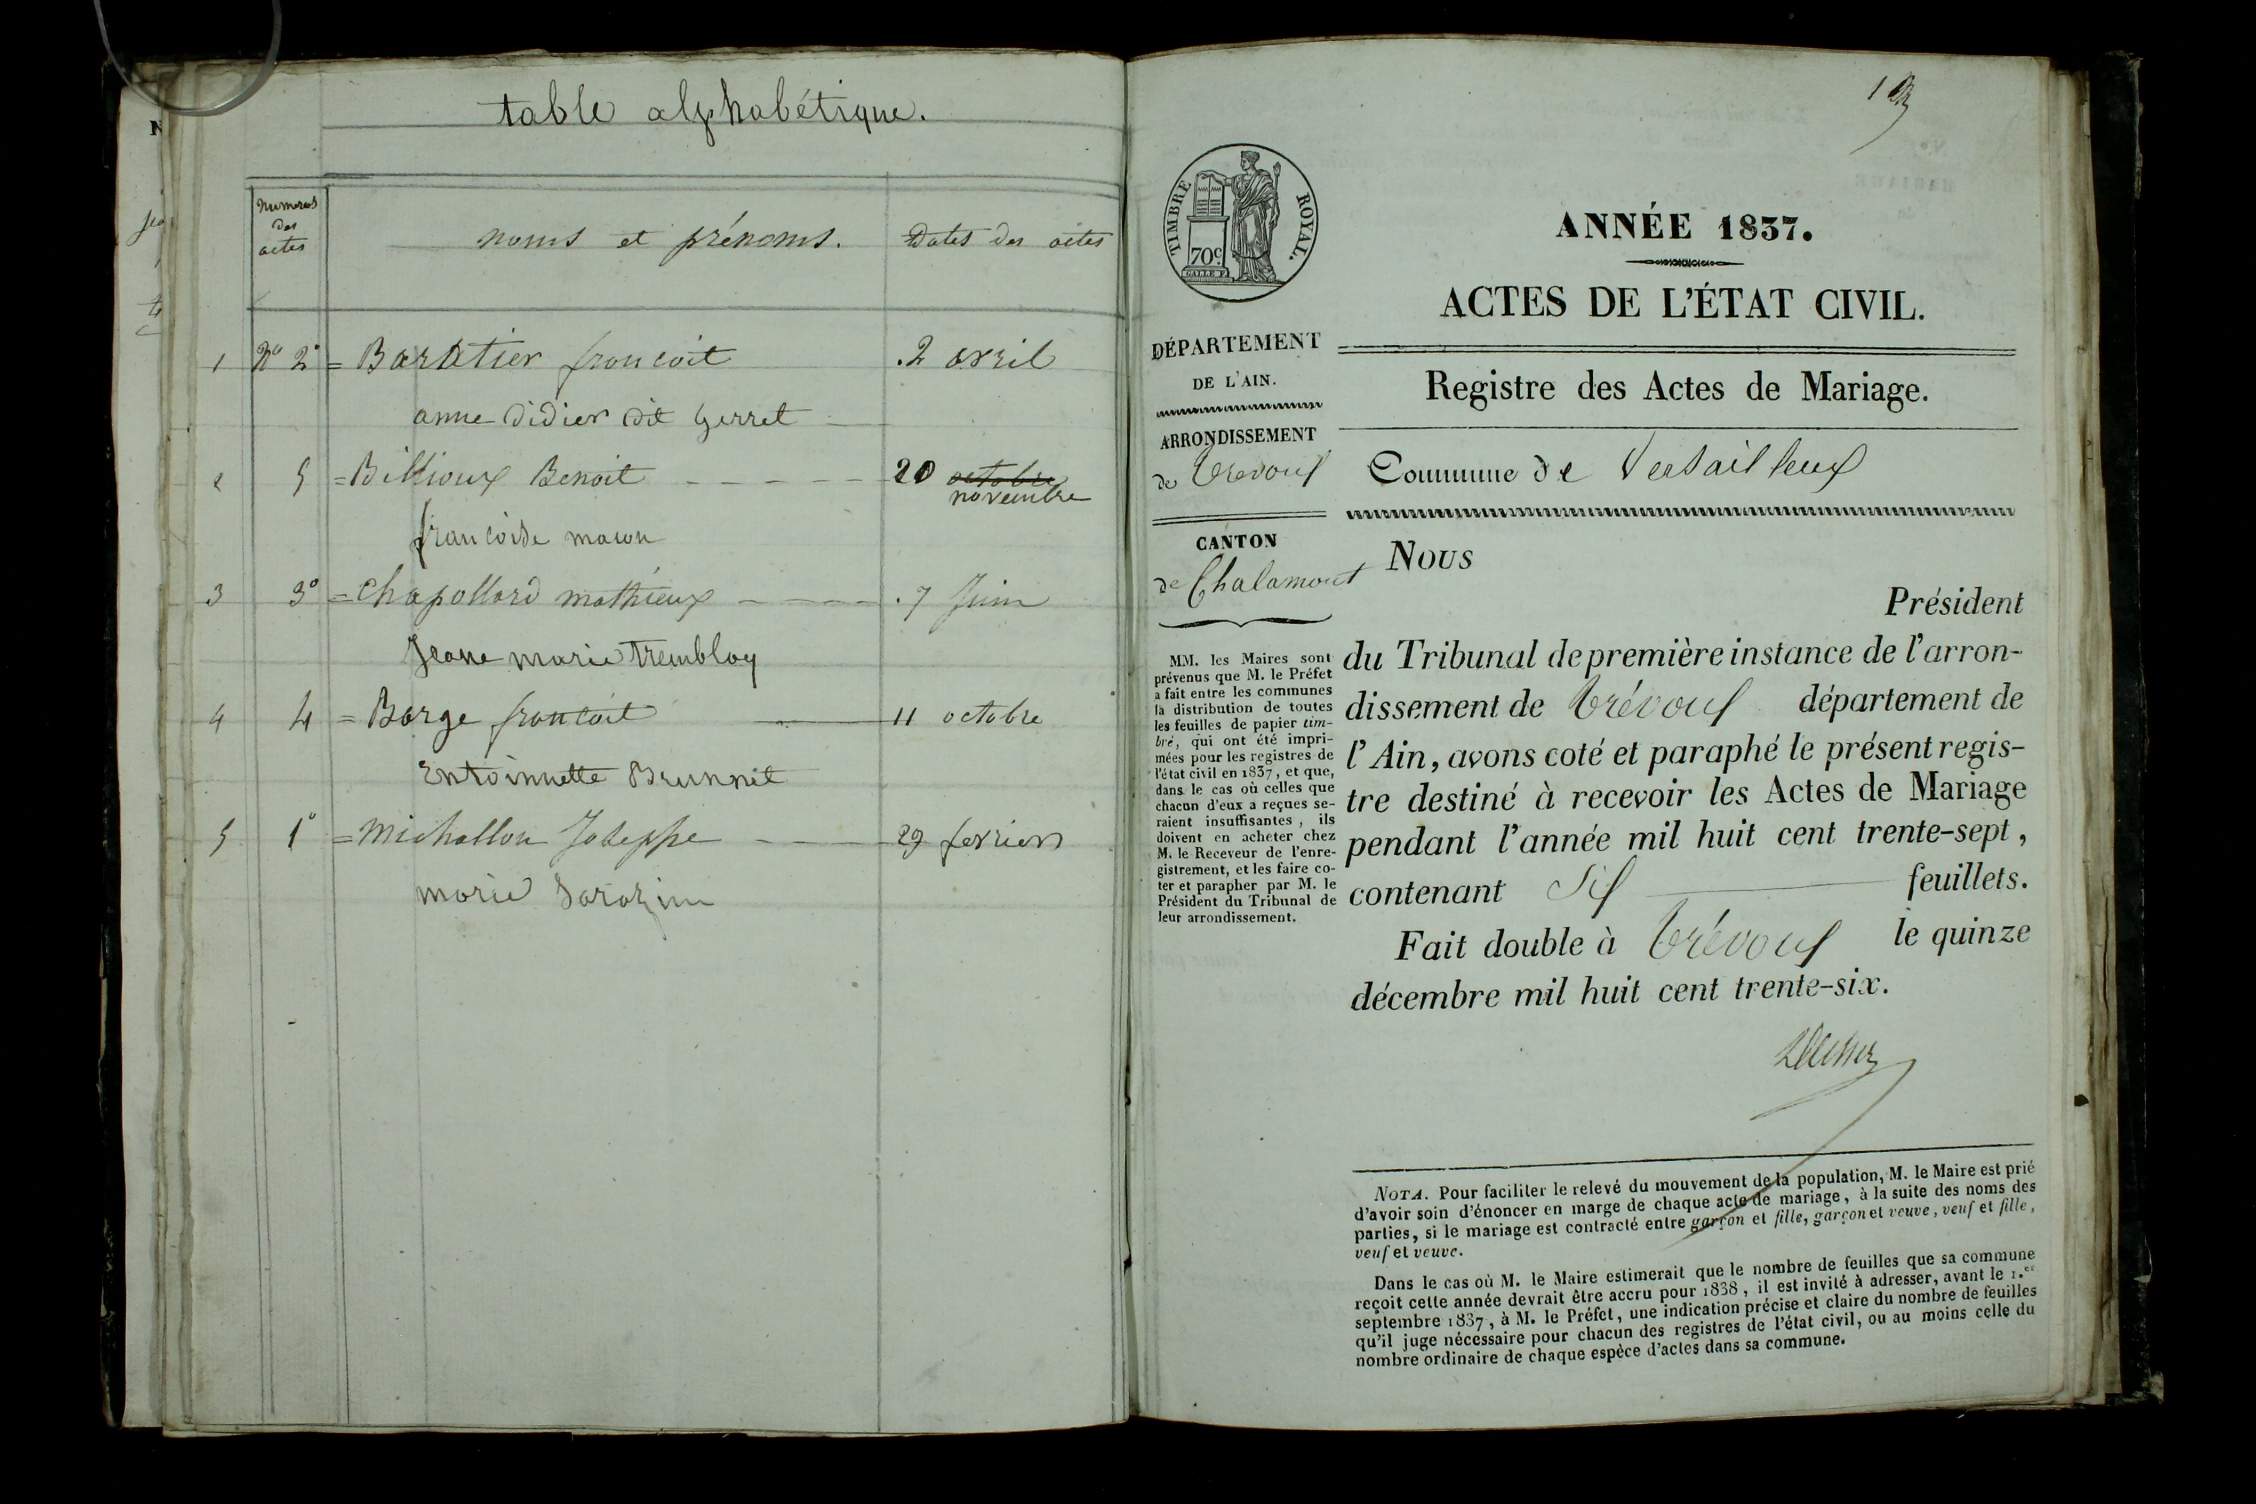 table alphabétique.
numeros des actes
noms et prénoms.
Dates des actes
1 No 2° = Baratier francoit .2 avril
anne didier dit gerret
2 5 = Billioux Benoit 20 octobre
novembre
francoise macon
3 3° = Chapollard mathieux .7 Juin
Jeane marie Tremblay
4 4 = Barge francoit 11 octobre
Entoinnette Brunnet
5 1° = Michallon Joseppe 29 fevrier
marie Sarazin
1
TIMBRE ROYAL.
70c.
ANNÉE 1837.
ACTES DE L'ÉTAT CIVIL.
DÉPARTEMENT
DE L'AIN.
ARRONDISSEMENT
de Trevoux
CANTON
de Chalamont
MM. les Maires sont
prévenus que M. le Préfet
a fait entre les communes
la distribution de toutes
les feuilles de papier tim-
bré, qui ont été impri-
mées pour les registres de
l'état civil en 1837, et que,
dans le cas où celles que
chacun d'eux a reçues se-
raient insuffisantes, ils
doivent en acheter chez
M. le Receveur de l'enre-
gistrement, et les faire co-
ter et parapher par M. le
Président du Tribunal de
leur arrondissement.
Registre des Actes de Mariage.
Commune de Versailleux
Nous
Président
du Tribunal de première instance de l'arron-
dissement de Trévoux département de
l'Ain, avons coté et paraphé le présent regis-
tre destiné à recevoir les Actes de Mariage
pendant l'année mil huit cent trente-sept,
contenant Six feuillets.
Fait double à Trévoux le quinze
décembre mil huit cent trente-six.
NOTA. Pour faciliter le relevé du mouvement de la population, M. le Maire est prié
d'avoir soin d'énoncer en marge de chaque acte de mariage, à la suite des noms des
parties, si le mariage est contracté entre garçon et fille, garçon et veuve, veuf et fille,
veuf et veuve.
Dans le cas où M. le Maire estimerait que le nombre de feuilles que sa commune
reçoit cette année devrait être accru pour 1838, il est invité à adresser, avant le 1.er
septembre 1837, à M. le Préfet, une indication précise et claire du nombre de feuilles
qu'il juge nécessaire pour chacun des registres de l'état civil, ou au moins celle du
nombre ordinaire de chaque espèce d'actes dans sa commune.